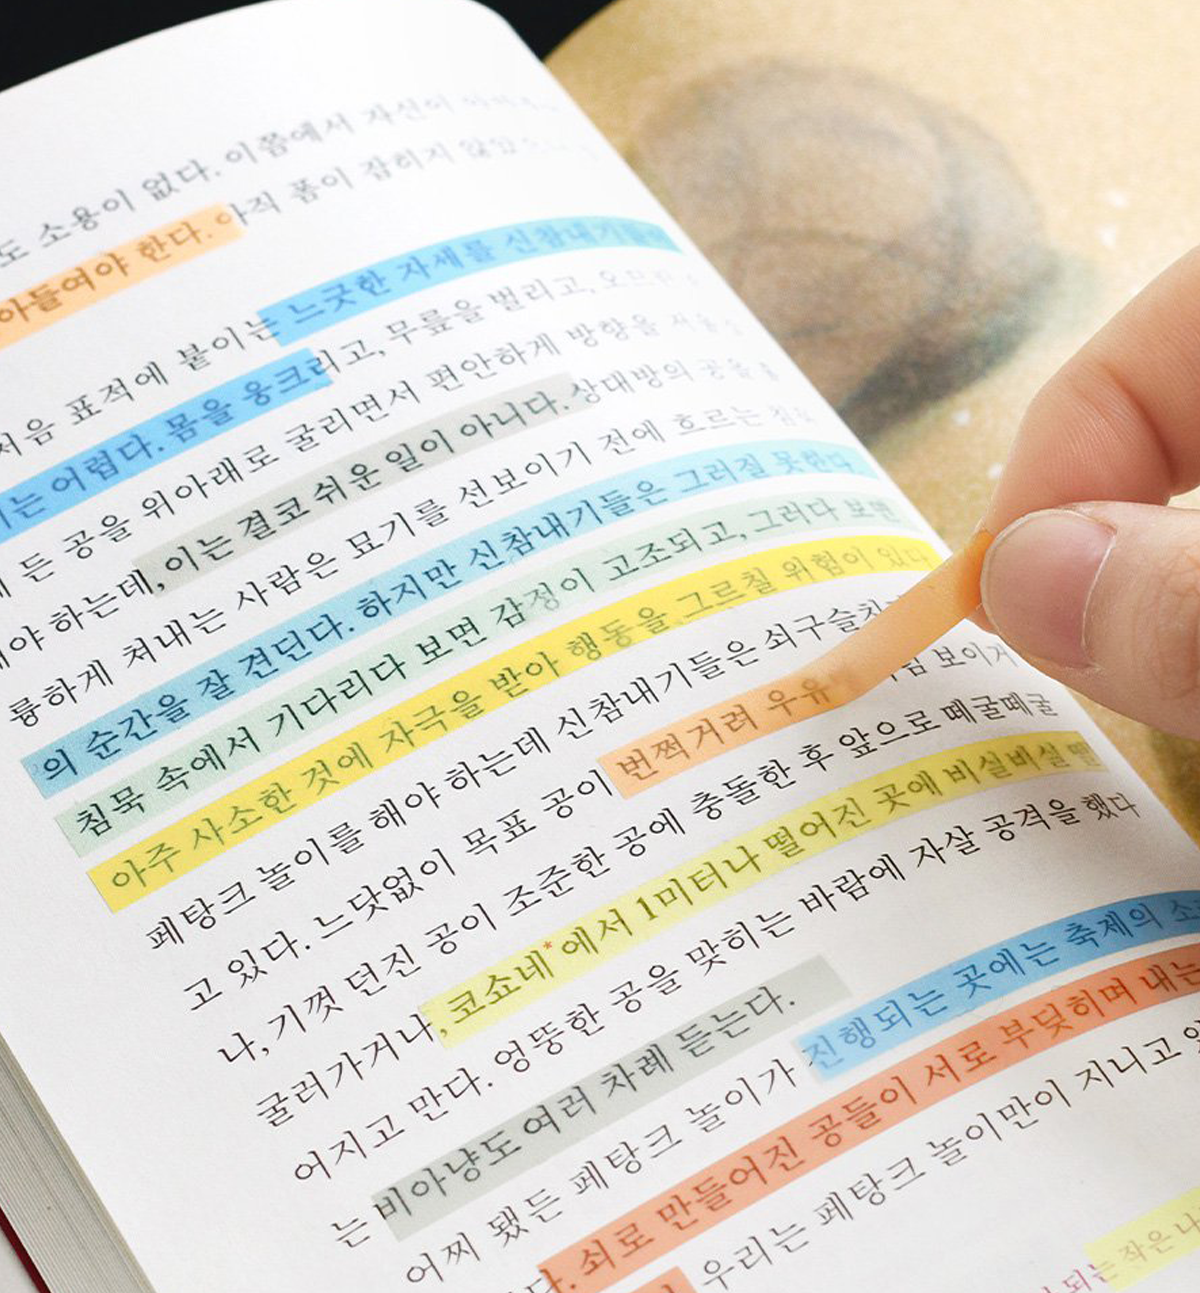 도 소용이 없다. 이쯤에서 자신이
아들여야 한다. 아직 폼이 잡히지 않았
처음 표적에 붙이는 느긋한 자세를 신참내기들이
기는 어렵다. 몸을 웅크리고, 무릎을 벌리고,
에 든 공을 위아래로 굴리면서 편안하게 방향을
해야 하는데, 이는 결코 쉬운 일이 아니다. 상대방의 공을
륭하게 쳐내는 사람은 묘기를 선보이기 전에 흐르는 침묵
의 순간을 잘 견딘다. 하지만 신참내기들은 그러질 못한다.
침묵 속에서 기다리다 보면 감정이 고조되고, 그러다 보면
아주 사소한 것에 자극을 받아 행동을 그르칠 위험이 있다
페탕크 놀이를 해야 하는데 신참내기들은 쇠구슬치기
고 있다. 느닷없이 목표 공이 번쩍거려 우유 보이거
나, 기껏 던진 공이 조준한 공에 충돌한 후 앞으로 떼굴떼굴
굴러가거나, 코쇼네*에서 1미터나 떨어진 곳에 비실비실 떨
어지고 만다. 엉뚱한 공을 맞히는 바람에 자살 공격을 했다
는 비아냥도 여러 차례 듣는다.
어찌 됐든 페탕크 놀이가 진행되는 곳에는 축제의 소
다. 쇠로 만들어진 공들이 서로 부딪히며 내는
우리는 페탕크 놀이만이 지니고 있
되는 작은 나